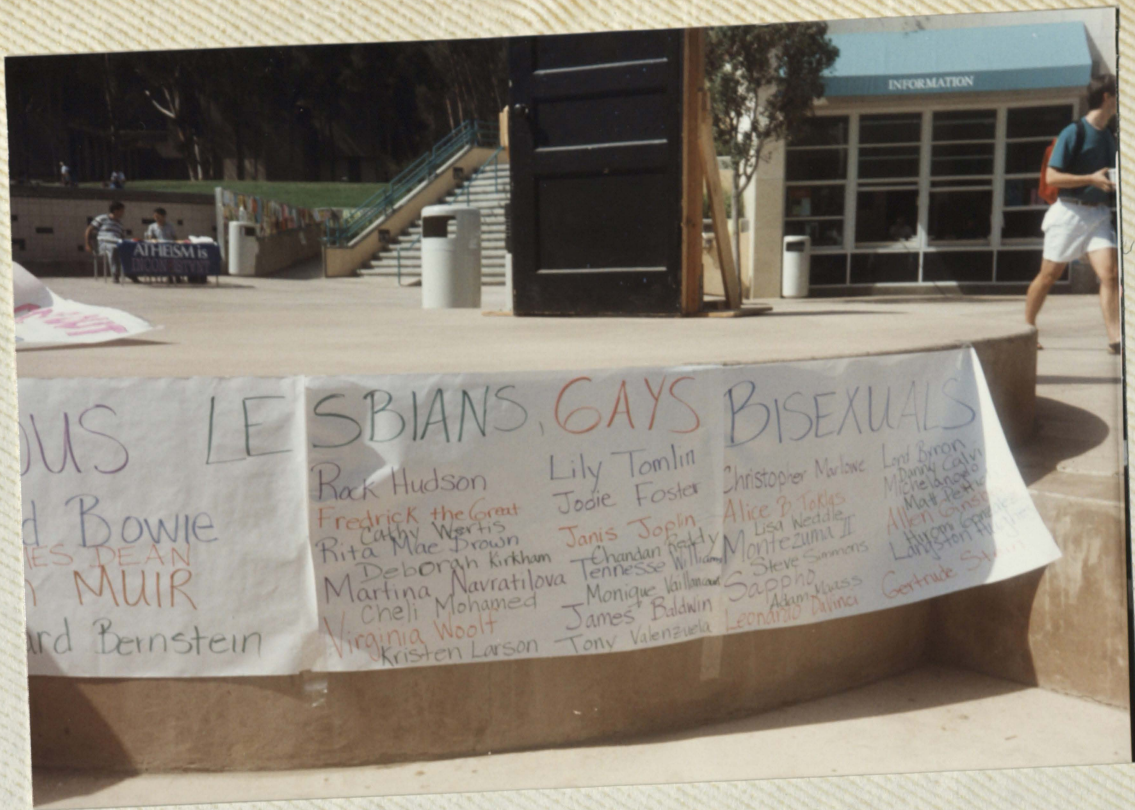 INFORMATION
ATHEISM is
OUS LESBIANS, GAYS BISEXUALS
d Bowie
ES DEAN
MUIR
ard Bernstein
Rock Hudson
Fredrick the Great
Cathy Wertis
Rita Mae Brown
Deborah Kirkham
Martina Navratilova
Cheli Mohamed
Virginia Woolf
Kristen Larson
Lily Tomlin
Jodie Foster
Janis Joplin
Chandan Reddy
Tennesse Williams
Monique Vaillancourt
James Baldwin
Tony Valenzuela
Christopher Marlowe
Alice B. Toklas
Lisa Weddle
Montezuma II
Steve Simmons
Sappho
Adam Kwass
Leonardo Davinci
Lord Biron
Danny Calvi
Michelangelo
Matt
Allen Ginsberg
Hiram
Langston
Gertrude Stein